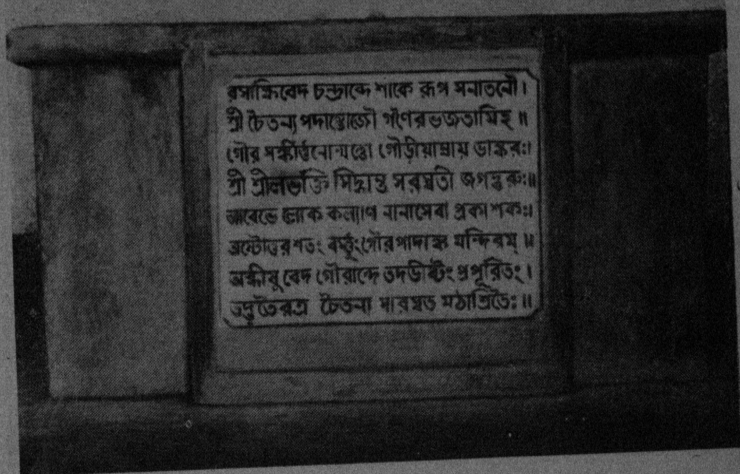 রসাব্ধিবেদ চন্দ্রাব্দে শাকে রূপ সনাতনৌ।
শ্রী চৈতন্য পদাম্ভোজৌ গণৈরভজতামিহ॥
গৌর সঙ্কীর্ত্তনোন্মত্তো গৌড়ীয়াম্নায় ভাস্করঃ।
শ্রী শ্রীলভক্তি সিদ্ধান্ত সরস্বতী জগদ্গুরুঃ॥
আরেভে লোক কল্যাণ নানাসেবা প্রকাশকঃ।
অষ্টোত্তর শতং কর্ত্তুং গৌর পাদাঙ্ক মন্দিরম্॥
বেদ গৌরাব্দে তদভীষ্টং প্রপূরিতং।
চৈতন্য সারস্বত মঠাশ্রিতৈঃ॥